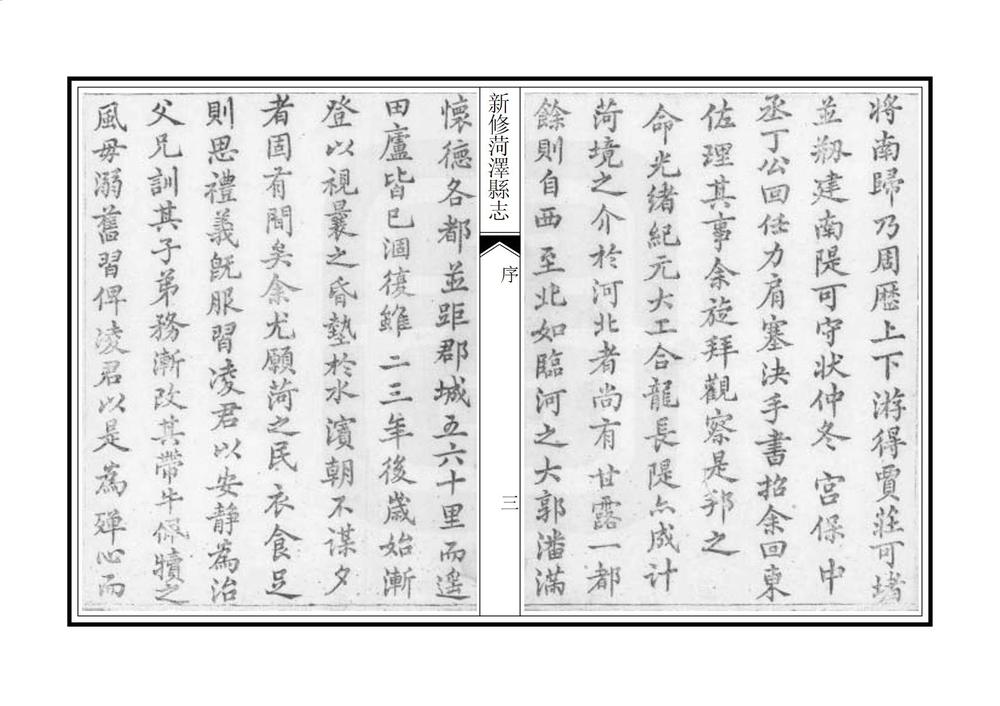 将南歸乃周歴上下游得賈莊可堵
並剏建南隄可守狀仲冬 宮保 中
丞丁公回任力肩塞决手書招余回東
佐理其事余旋拜觀察是邦之
命光緒紀元大工合龍長隄亦成計
菏境之介於河北者尚有甘露一都
餘則自西至北如臨河之大郭潘滿
新修菏澤縣志
序
三
懷德各都並距郡城五六十里而遥
田廬皆已涸復雖二三年後歲始漸
登以視曩之昏墊於水濱朝不謀夕
者固有間矣余尤願菏之民衣食足
則思禮義旣服習凌君以安静爲治
父兄訓其子弟務漸改其帶牛佩犢之
風毋溺舊習俾凌君以是爲殫心而